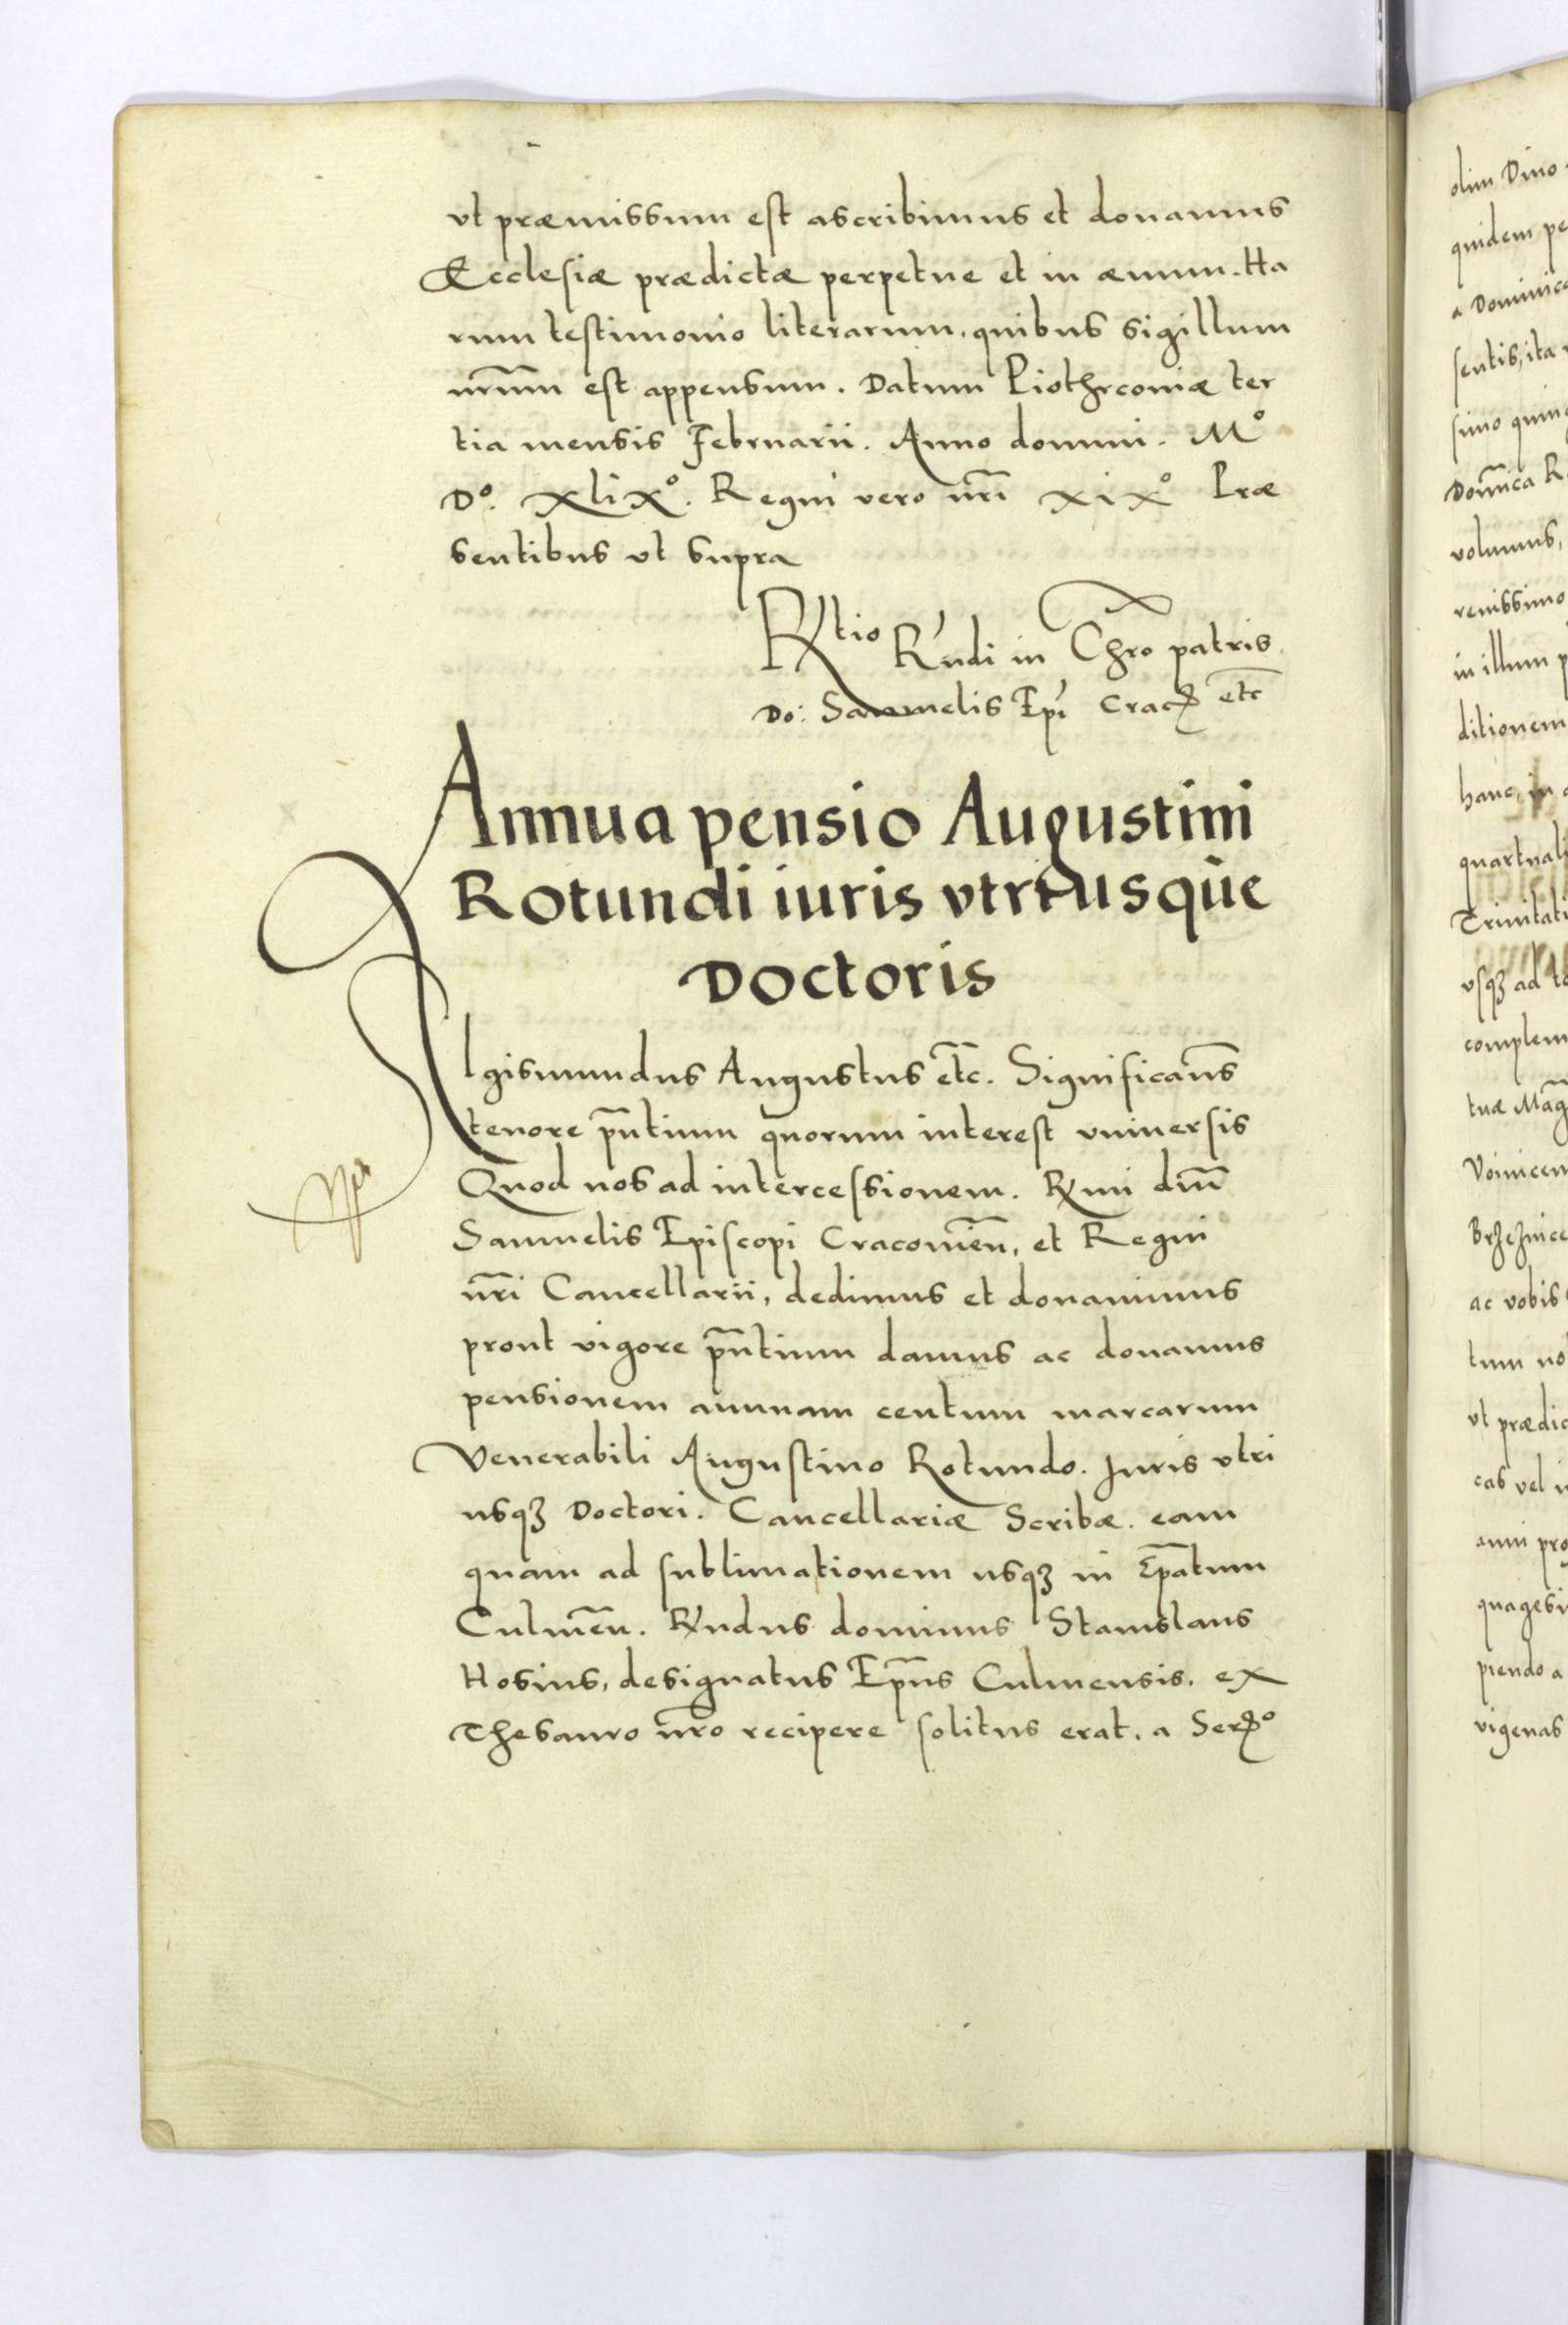 vt præmissum est ascribimus et donamus
Ecclesiæ prædictæ perpetue et in æuum. Ha
rum testimonio literarum. quibus sigillum
nr̃um est appensum. Datum Piothrcouiæ ter
tia mensis Februarii. Anno domini. Mº
Dº. xlixº. Regni vero nr̃i xixº Præ
sentibus vt supra
Rtio R'ndi in Chro patris
Do: Samuelis Epi Crac etc
Annua pensio Augustini
Rotundi iuris vtriusque
Doctoris
SIgismundus Augustus etc. Significam̃s
tenore pñtium quorum interest vniuersis
Quod nos ad intercessionem. Rmi dñi
Samuelis Episcopi Cracouieñ, et Regni
nr̃i Cancellarii, dedimus et donauimus
prout vigore pñtium damus ac donamus
pensionem annuam centum marcarum
Venerabili Augustino Rotundo. Iuris vtri
usqꝫ Doctori. Cancellariæ Scribæ. eam
quam ad sublimationem usqꝫ in Ep̃atum
Culmeñ. R'ndus dominus Stanislaus
Hosius, designatus Ep̃us Culmensis. ex
Thesauro nr̃o recipere solitus erat. a Serº
olim Diuo
quidem pe
a Dominica
sentis, ita
simo quing
Domica R
volumus,
renissimo
in illum p
ditionem
hanc, in
quartuali
Trinitati
vsqꝫ ad
complem
tuæ Mag
Voinicen
Brzeznice
ac vobis
tum no
vt prædic
cas vel
anni pro
quagesi
piendo a
vigenas